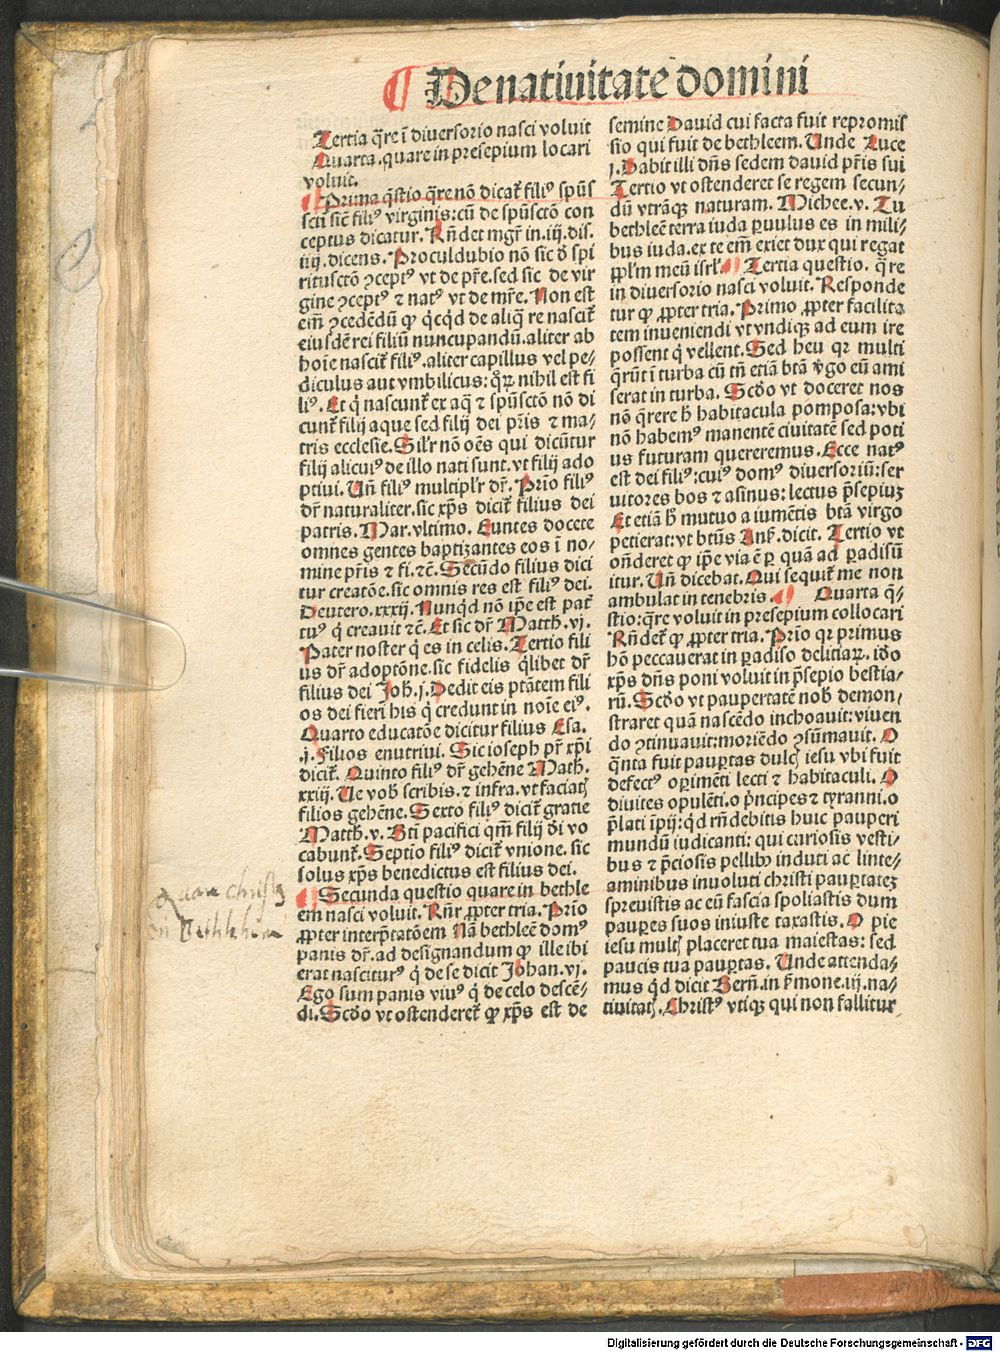 ¶ De natiuitate domini
Tertia q̄re ī diuersorio nasci voluit
Quarta. quare in presepium locari
voluit.
¶ Prima q̄stio q̄re nō dicat᷑ filiꝰ spūs
scti sic̄ filiꝰ virginis: cū de spūsctō con
ceptus dicatur. Rn̄det mgr̄ in .iij. dis.
iiij. dicens. Proculdubio nō sic ō spi
ritusctō ꝯceptꝰ vt de pr̄e. sed sic de vir
gine ꝯceptꝰ ⁊ natꝰ vt de mr̄e. Non est
em̄ ꝯcedēdū ꝙ q̇cq̇d de aliq̄ re nascit᷑
eiusdē rei filiū nuncupandū. aliter ab
hoīe nascit᷑ filiꝰ. aliter capillus vel pe⸗
diculus aut vmbilicus: q̊ꝝ nihil est fi
liꝰ. Et q̇ nascunt᷑ ex aq̄ ⁊ spūsctō nō di
cunt᷑ filij aque sed filij dei pr̄is ⁊ ma⸗
tris ecclesie. Silr̄ nō oēs qui dicūtur
filij alicuiꝰ de illo nati sunt. vt filij ado
ptiui. Un̄ filiꝰ multiplr̄ dr̄. Prīo filiꝰ
dr̄ naturaliter. sic xp̄s dicit᷑ filius dei
patris. Mar. vltimo. Euntes docete
omnes gentes baptizantes eos ī no⸗
mine pr̄is ⁊ fi. ⁊c̄. Secūdo filius dici
tur creatōe. sic omnis res est filiꝰ dei.
Deutero. xxxij. Nunq̇d nō ip̄e est pat᷑
tuꝰ q̇ creauit ⁊c̄. Et sic dr̄ Matth. vj.
Pater noster q̇ es in celis. Tertio fili
us dr̄ adoptōne. sic fidelis q̇libet dr̄
filius dei Joh̄. j. Dedit eis ptātem fili
os dei fieri his q̇ credunt in noīe eiꝰ.
Quarto educatōe dicitur filius Esa.
.j. Filios enutriui. Sic ioseph pr̄ xp̄i
dicit᷑. Quinto filiꝰ dr̄ gehēne Math̄.
xxiij. Ue vob̄ scribis. ⁊ infra. vt faciatꝭ
filios gehēne. Sexto filiꝰ dicit᷑ gratie
Matth̄. v. Btī pacifici qm̄ filij dei vo
cabunt᷑. Septio filiꝰ dicit᷑ vnione. sic
solus xp̄s benedictus est filius dei.
¶ Secunda questio quare in bethle
em nasci voluit. Rn̄r ꝓpter tria. Prīo
ꝓpter interp̄tatōem Nā bethleē domꝰ
panis dr̄. ad designandum ꝙ ille ibi
erat nasciturꝰ q̇ de se dicit Johan. vj.
Ego sum panis viuꝰ q̇ de celo descē⸗
di. Scdo vt ostenderet᷑ ꝙ xp̄s est de
semine Dauid cui facta fuit repromis
sio qui fuit de bethleem. Unde Luce
j. Dabit illi dn̄s sedem dauid pr̄is sui
Tertio vt ostenderet se regem secun⸗
dū vtrāqꝫ naturam. Michee. v. Tu
bethleē terra iuda ꝑuulus es in mili⸗
bus iuda. ex te em̄ exiet dux qui regat
ppl̄m meū isrl̄. ¶ Tertia questio. q̄re
in diuersorio nasci voluit. Responde
tur ꝙ ꝓpter tria. Primo ꝓpter facilita
tem inueniendi vt vndiqꝫ ad eum ire
possent q̇ vellent. Sed heu qꝛ multi
q̄rūt ī turba cū tn̄ etiā btā v̊go eū ami
serat in turba. Scdo vt doceret nos
nō q̄rere h̄ habitacula pomposa: vbi
nō habemꝰ manentē ciuitatē sed poti
us futuram quereremus. Ecce natꝰ
est dei filiꝰ: cuiꝰ domꝰ diuersoriū: ser
uitores bos ⁊ asinus: lectus p̄sepiuꝫ
Et etiā h̄ mutuo a iumētis btā virgo
petierat: vt btūs Anẜ. dicit. Tertio vt
on̄deret ꝙ ip̄e via ē ꝑ quā ad ꝑadisū
itur. Un̄ dicebat. Qui sequit᷑ me non
ambulat in tenebris. ¶ Quarta q̄⸗
stio: q̄re voluit in presepium collocari
Rn̄det᷑ ꝙ ꝓpter tria. Prīo qꝛ primus
hō peccauerat in ꝑadiso delitiaꝝ. iō̊
xp̄s dn̄s poni voluit in p̄sepio bestia⸗
rū. Scdo vt paupertatē nob̄ demon⸗
straret quā nascēdo inchoauit: viuen
do ꝯtinuauit: moriēdo ꝯsūmauit. O
q̄nta fuit pauꝑtas dulcꝭ iesu vbi fuit
defectꝰ oꝑimēti lecti ⁊ habitaculi. O
diuites opulēti. o p̄ncipes ⁊ tyranni. o
p̄lati īpij: q̇d rn̄debitis huic pauperi
mundū iudicanti: qui curiosis vesti⸗
bus ⁊ p̄ciosis pellibꝫ induti ac linte⸗
aminibus inuoluti christi pauꝑtateꝫ
spreuistis ac eū fascia spoliastis dum
pauꝑes suos iniuste taxastis. O pie
iesu multꝭ placeret tua maiestas: sed
paucis tua pauꝑtas. Unde attenda⸗
mus q̇d dicit Bern̄. in ẜmone. iij. na⸗
tiuitatꝭ. Christꝰ vtiqꝫ qui non fallitur
Quare christꝰ
in Bethlehem
Digitalisierung gefördert durch die Deutsche Forschungsgemeinschaft - DFG